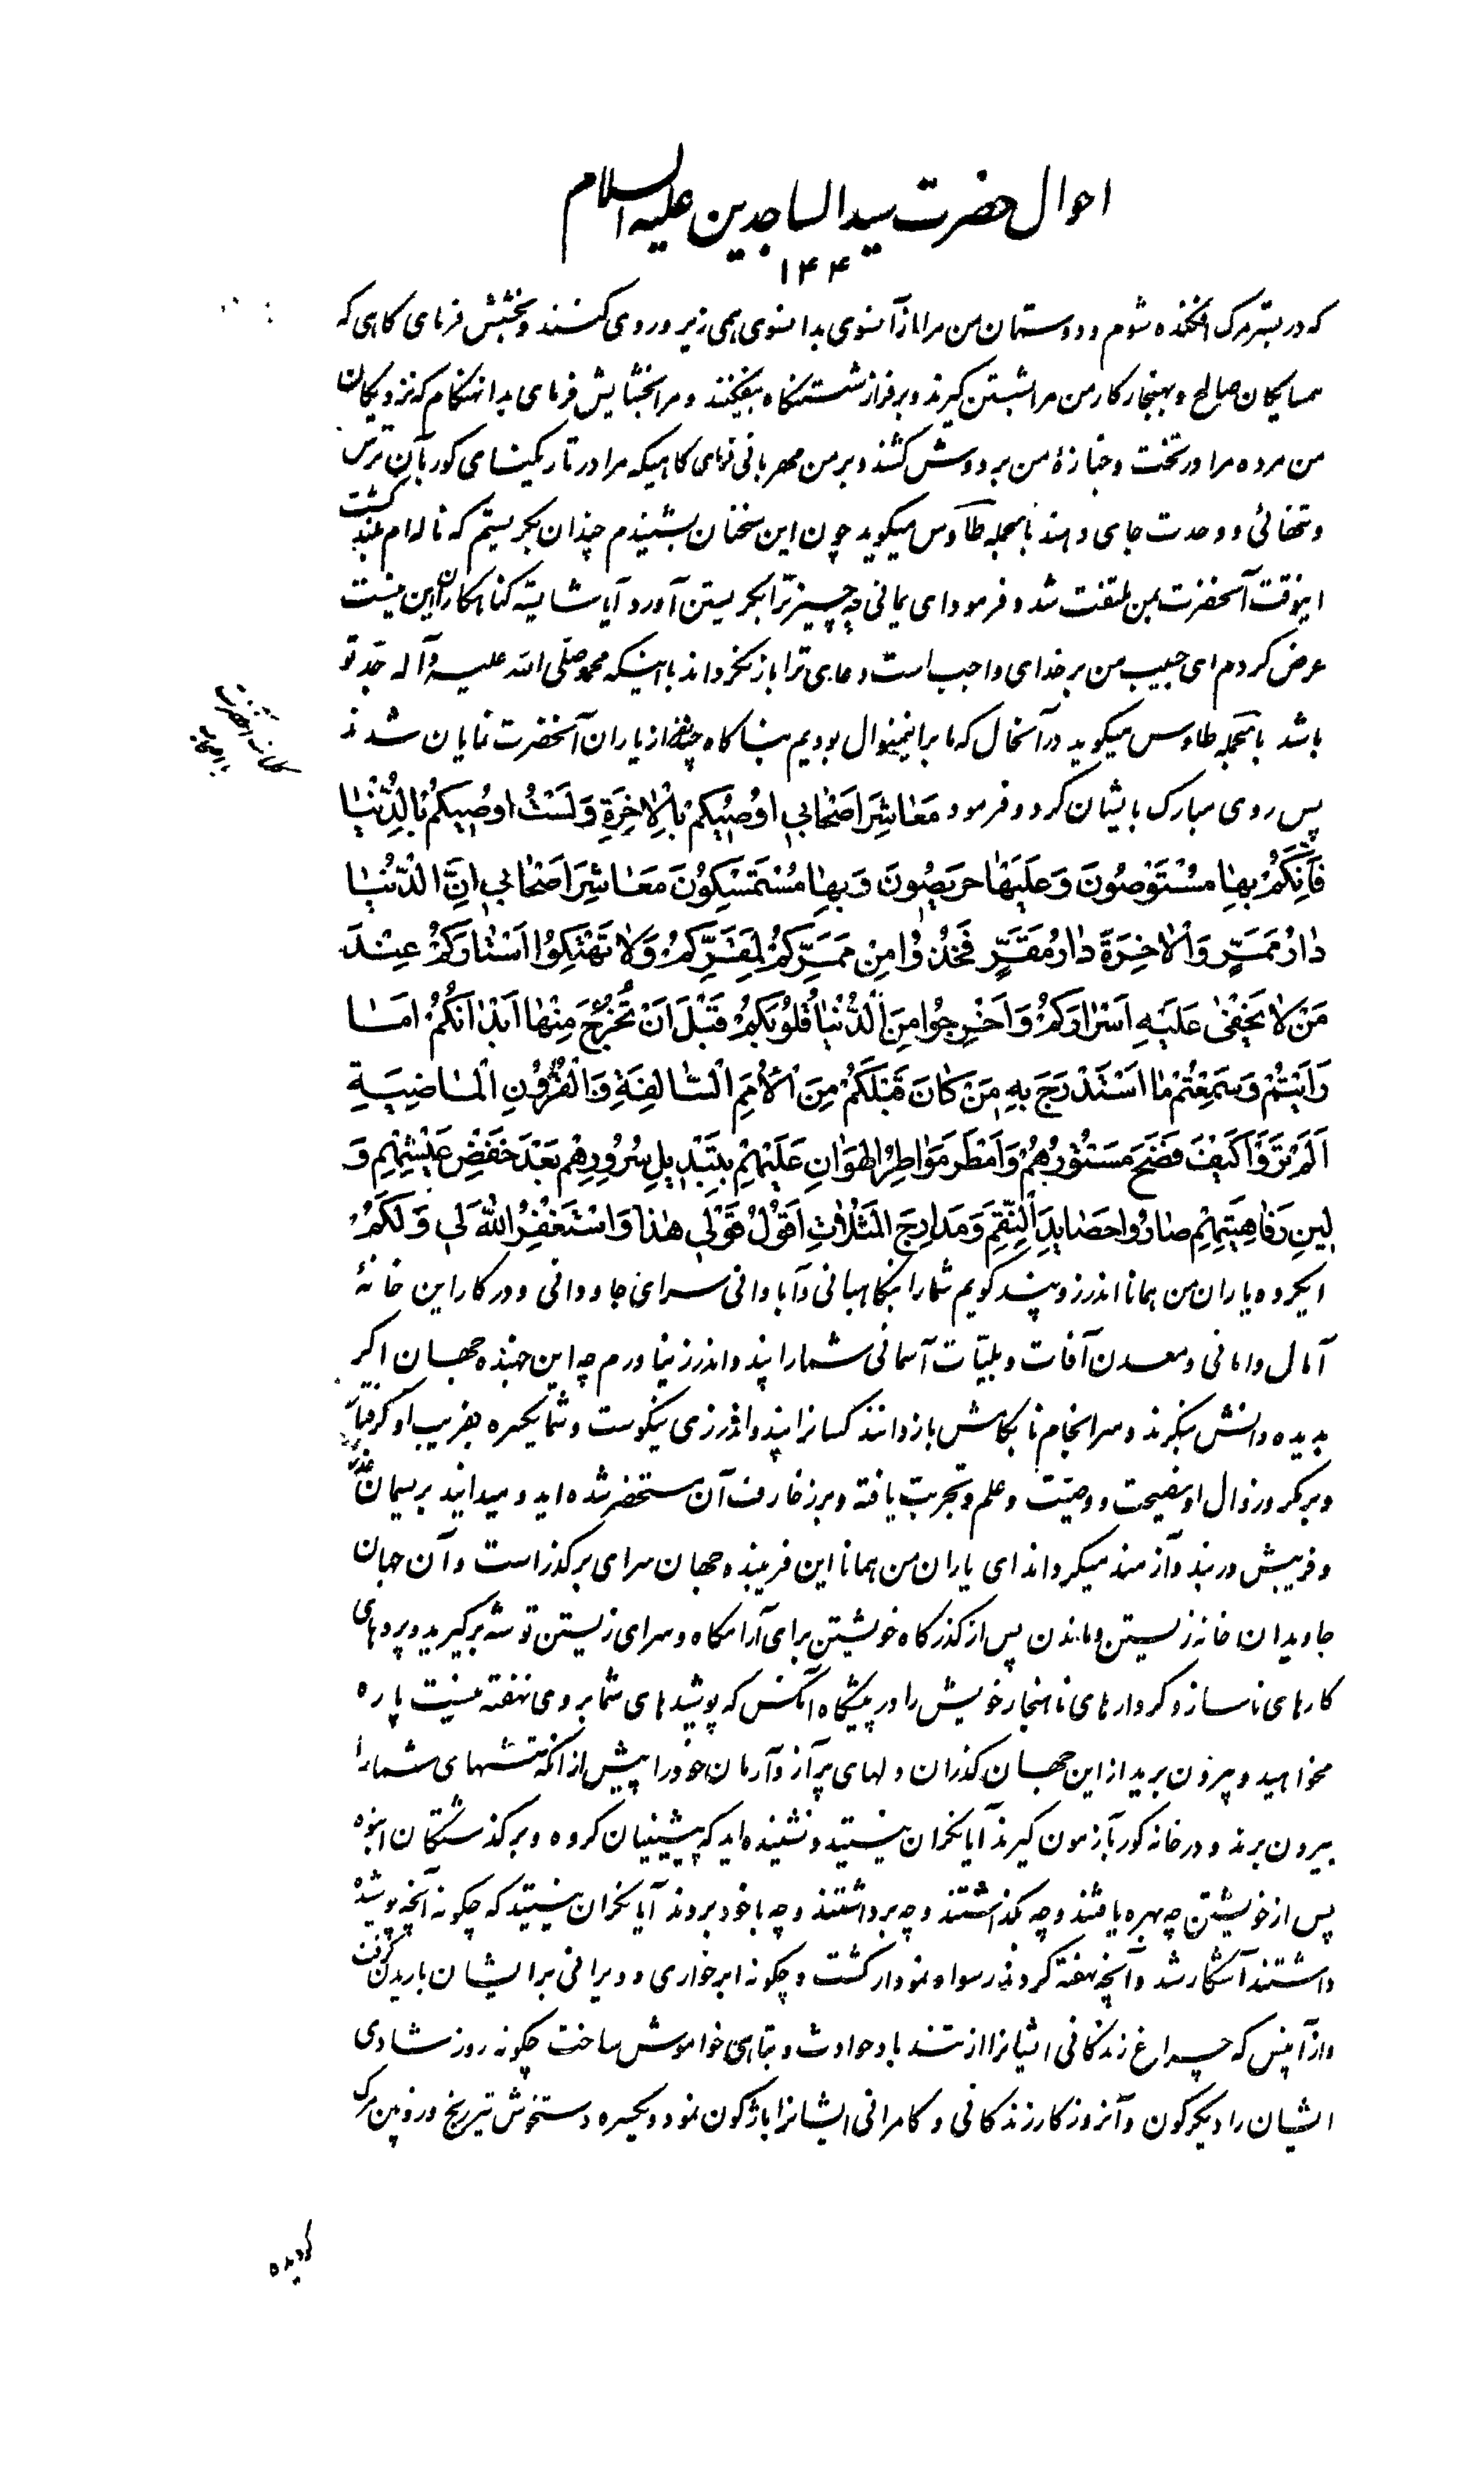 احوال حضرت سیدالساجدین علیه السلام
۱۴۴
که در بستر مرک افکنده شوم و دوستان من مرا از آنسوی بدانسوی همی زیر و روی کنند و بخشش فرمای کاهی که
همسایکان صالح و بهنجار کار من مرا بشستن کیرند و برفراز شستنکاه بیفکنند و مرا بخشایش فرمای بدانهنکام که نزدیکان
من مرده مرا در تخت و جنازهٔ من بر دوش کشند و بر من مهربانی فرمای کاهیکه مرا در تاریکنای کور بآن ترس
و تنهائی و وحدت جای دهند بالجمله طاوس میکوید چون این سخنان بشنیدم چندان بکریستم که ناله‌ام بلند کشت
اینوقت آنحضرت بمن ملتفت شد و فرمود ای یمانی چه چیز ترا بکریستن آورد آیا شایسته کناهکاران این نیست
عرض کردم ای حبیب من بر خدای واجب است دعای ترا باز نکرداند با اینکه محمد صلّی الله علیه و آله جدّ تو
باشد بالجمله طاوس میکوید در آنحال که ما براینمنوال بودیم بناکاه چند نفر از یاران آنحضرت نمایان شدند
پس روی مبارک بایشان کرد و فرمود مَعاشِرَ اَصْحابي اوُصيكُمْ بِالْاخِرَةِ وَلَسْتُ اوُصيكُمْ بِالدُّنْيا
فَاِنَّكُمْ بِها مُسْتَوْصُونَ وَعَلَيْها حَريصُونَ وَبِها مُسْتَمْسِكُونَ مَعاشِرَ اَصْحابي اِنَّ الدُّنْيا
دارُ مَمَرٍّ وَالْاخِرَةَ دارُ مَقَرٍّ فَخُذُوا مِنْ مَمَرِّكُمْ لِمَقَرِّكُمْ وَلا تَهْتِكُوا اَسْتارَكُمْ عِنْدَ
مَنْ لا يَخْفىٰ عَلَيْهِ اَسْرارُكُمْ وَاَخْرِجُوا مِنَ الدُّنْيا قُلُوبَكُمْ قَبْلَ اَنْ تَخْرُجَ مِنْها اَبْدانُكُمْ اَما
رَاَيْتُمْ وَسَمِعْتُمْ مَا اسْتَدْرَجَ بِهِ مَنْ كانَ قَبْلَكُمْ مِنَ الْاُمَمِ السّالِفَةِ وَالْقُرُونِ الْماضِيَةِ
اَلَمْ تَرَوْا كَيْفَ فَضَحَ مَسْتُورُهُمْ وَاَمْطَرَ مَواطِرُ الْهَوانِ عَلَيْهِمْ بِتَبْديلِ سُرُورِهِمْ بَعْدَ خَفْضِ عَيْشِهِمْ وَ
لينِ رَفاهِيَتِهِمْ صارُوا حَصايِدَ النِّقَمِ وَمَدارِجَ الْمَثُلاتِ اَقُولُ قَوْلي هذا وَاسْتَغْفِرُ اللّٰهَ لي وَلَكُمْ
ایکروه یاران من همانا اندرز و پند کویم شما را بنکاهبانی و آبادانی سرای جاودانی و در کار این خانهٔ
آمال و امانی و معدن آفات و بلیّات آسمانی شما را پند و اندرز نیاورم چه این جنبنده جهان اکر
بدیده دانش بنکرند و سرانجام نابکامش بازدانند کسانرا پند و اندرزی نیکوست و شما یکسره بفریب او کرفتار
و بر مکر و زوال او نصیحت و وصیّت و علم و تجربت یافته و بر زخارف آن مستحضر شده‌اید و میدانید بریسمان غدر
و فریبش دربند و آزمند میکرداند ای یاران من همانا این فریبنده جهان سرای برکذر است و آن جهان
جاویدان خانه زیستن و ماندن پس از کذرکاه خویشتن برای آرامکاه و سرای زیستن توشه برکیرید و پردهای
کارهای ناساز و کردارهای ناهنجار خویش را در پیشکاه آنکس که پوشیدهای شما بر وی نهفته نیست پاره
مخواهید و بیرون برید از این جهان کذران دلهای پر آز و آرمان خود را پیش از آنکه تنهای شما را
بیرون برند و در خانه کور بآزمون کیرند آیا نکران نیستید و نشنیده‌اید که پیشینیان کروه و برکذشتکان انبوه
پس از خویشتن چه بهره یافتند و چه بکذاشتند و چه برداشتند و چه با خود بردند آیا نکران نیستید که چکونه آنچه پوشیده
داشتند آشکار شد و آنچه نهفته کردند رسوا و نمودار کشت و چکونه ابر خواری و ویرانی بر ایشان باریدن کرفت
و از آنپس که چراغ زندکانی ایشانرا از تند باد حوادث و تباهی خواموش ساخت چکونه روز شادی
ایشان را دیکرکون و آنروزکار زندکانی و کامرانی ایشانرا باژکون نمود و یکسره دستخوش تیر رنج و زوبین مرک
کردیده